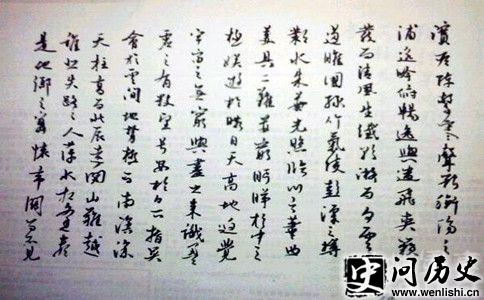 濱雁陣驚寒聲斷衡陽之
浦遙吟俯暢逸興遄飛爽籟
發而清風生纖歌凝而白雲
遏睢園綠竹氣凌彭澤之樽
鄴水朱華光照臨川之筆四
美具二難並窮睇眄於中天
極娛遊於暇日天高地迥覺
宇宙之無窮興盡悲來識盈
虛之有數望長安於日下指吳
會於雲間地勢極而南溟深
天柱高而北辰遠關山難越
誰悲失路之人萍水相逢盡
是他鄉之客懷帝閽而不見
史 问历史
www.wenlishi.cn